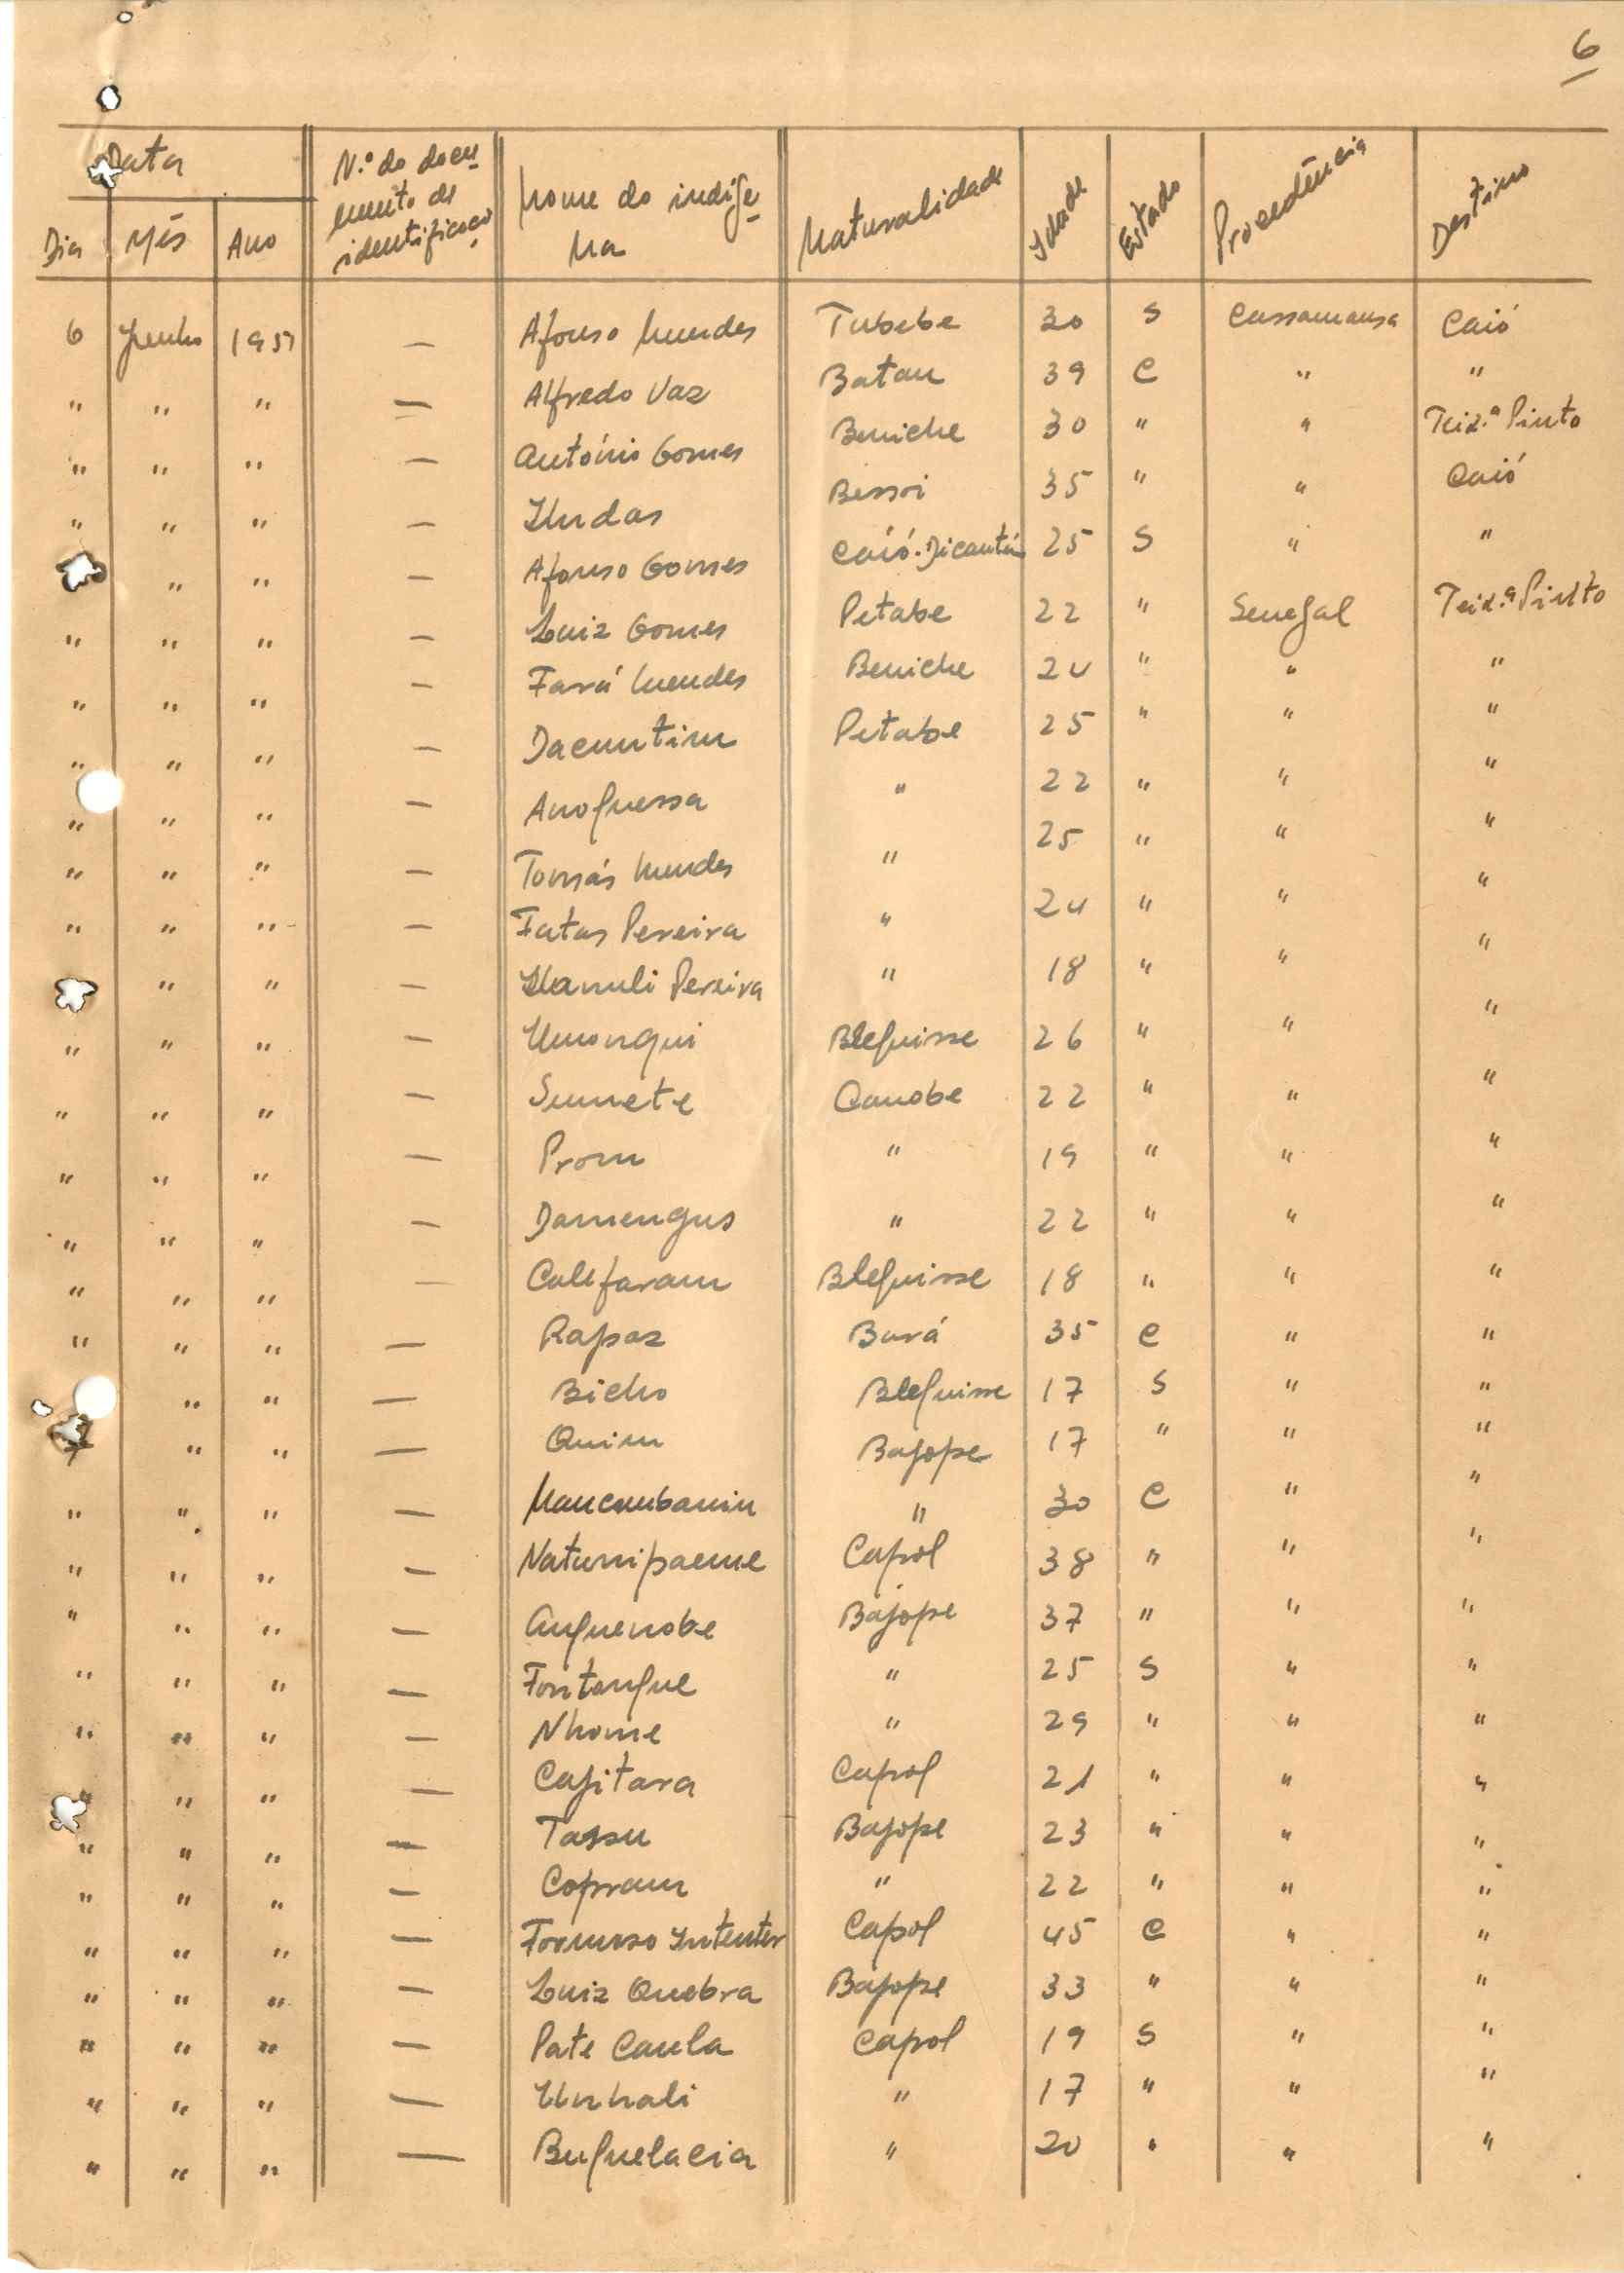 6
Data
N.º do docu-
mento de
identificação
Nome do indíge-
na
Naturalidade
Idade
Estado
Procedência
Destino
Dia Mês Ano
6 Junho 1957 — Afonso Mendes Tubebe 30 S Cassamansa Caió
" " " — Alfredo Vaz Batau 39 C " "
" " " — António Gomes Beniche 30 " " Teix.ª Pinto
" " " — Undas Bessoi 35 " " Caió
" " — Afonso Gomes Caió-Dicantú 25 S " "
" " " — Luiz Gomes Petabe 22 " Senegal Teix.ª Pinto
" " " — Fará Mendes Beniche 24 " " "
" " " — Dacuntim Petabe 25 " " "
" " " — Anoguessa " 22 " " "
" " " — Tomás Mendes " 25 " " "
" " " — Fatas Pereira " 24 " " "
" " — Unanuli Pereira " 18 " " "
" " " — Umongui Bleguisse 26 " " "
" " " — Sumete Canobe 22 " " "
" " " — Prom " 19 " " "
" " " — Damengus " 22 " " "
" " " — Califaram Bleguisse 18 " " "
" " " — Rapaz Bará 35 C " "
" " — Bicho Bleguisse 17 S " "
" " — Quim Bajope 17 " " "
" " " — Mancambanim " 30 C " "
" " " — Natunipaeme Capol 38 " " "
" " " — Anguenobe Bajope 37 " " "
" " " — Fontangue " 25 S " "
" " " — Nhome " 29 " " "
" " " — Capitara Capol 21 " " "
" " " — Tassu Bajope 23 " " "
" " " — Copram " 22 " " "
" " " — Capol 45 C " "
" " " — Luiz Quebra Bajope 33 " " "
" " " — Pate Caula Capol 19 S " "
" " " — Unhali " 17 " " "
" " " — Buguelacia " 20 " " "